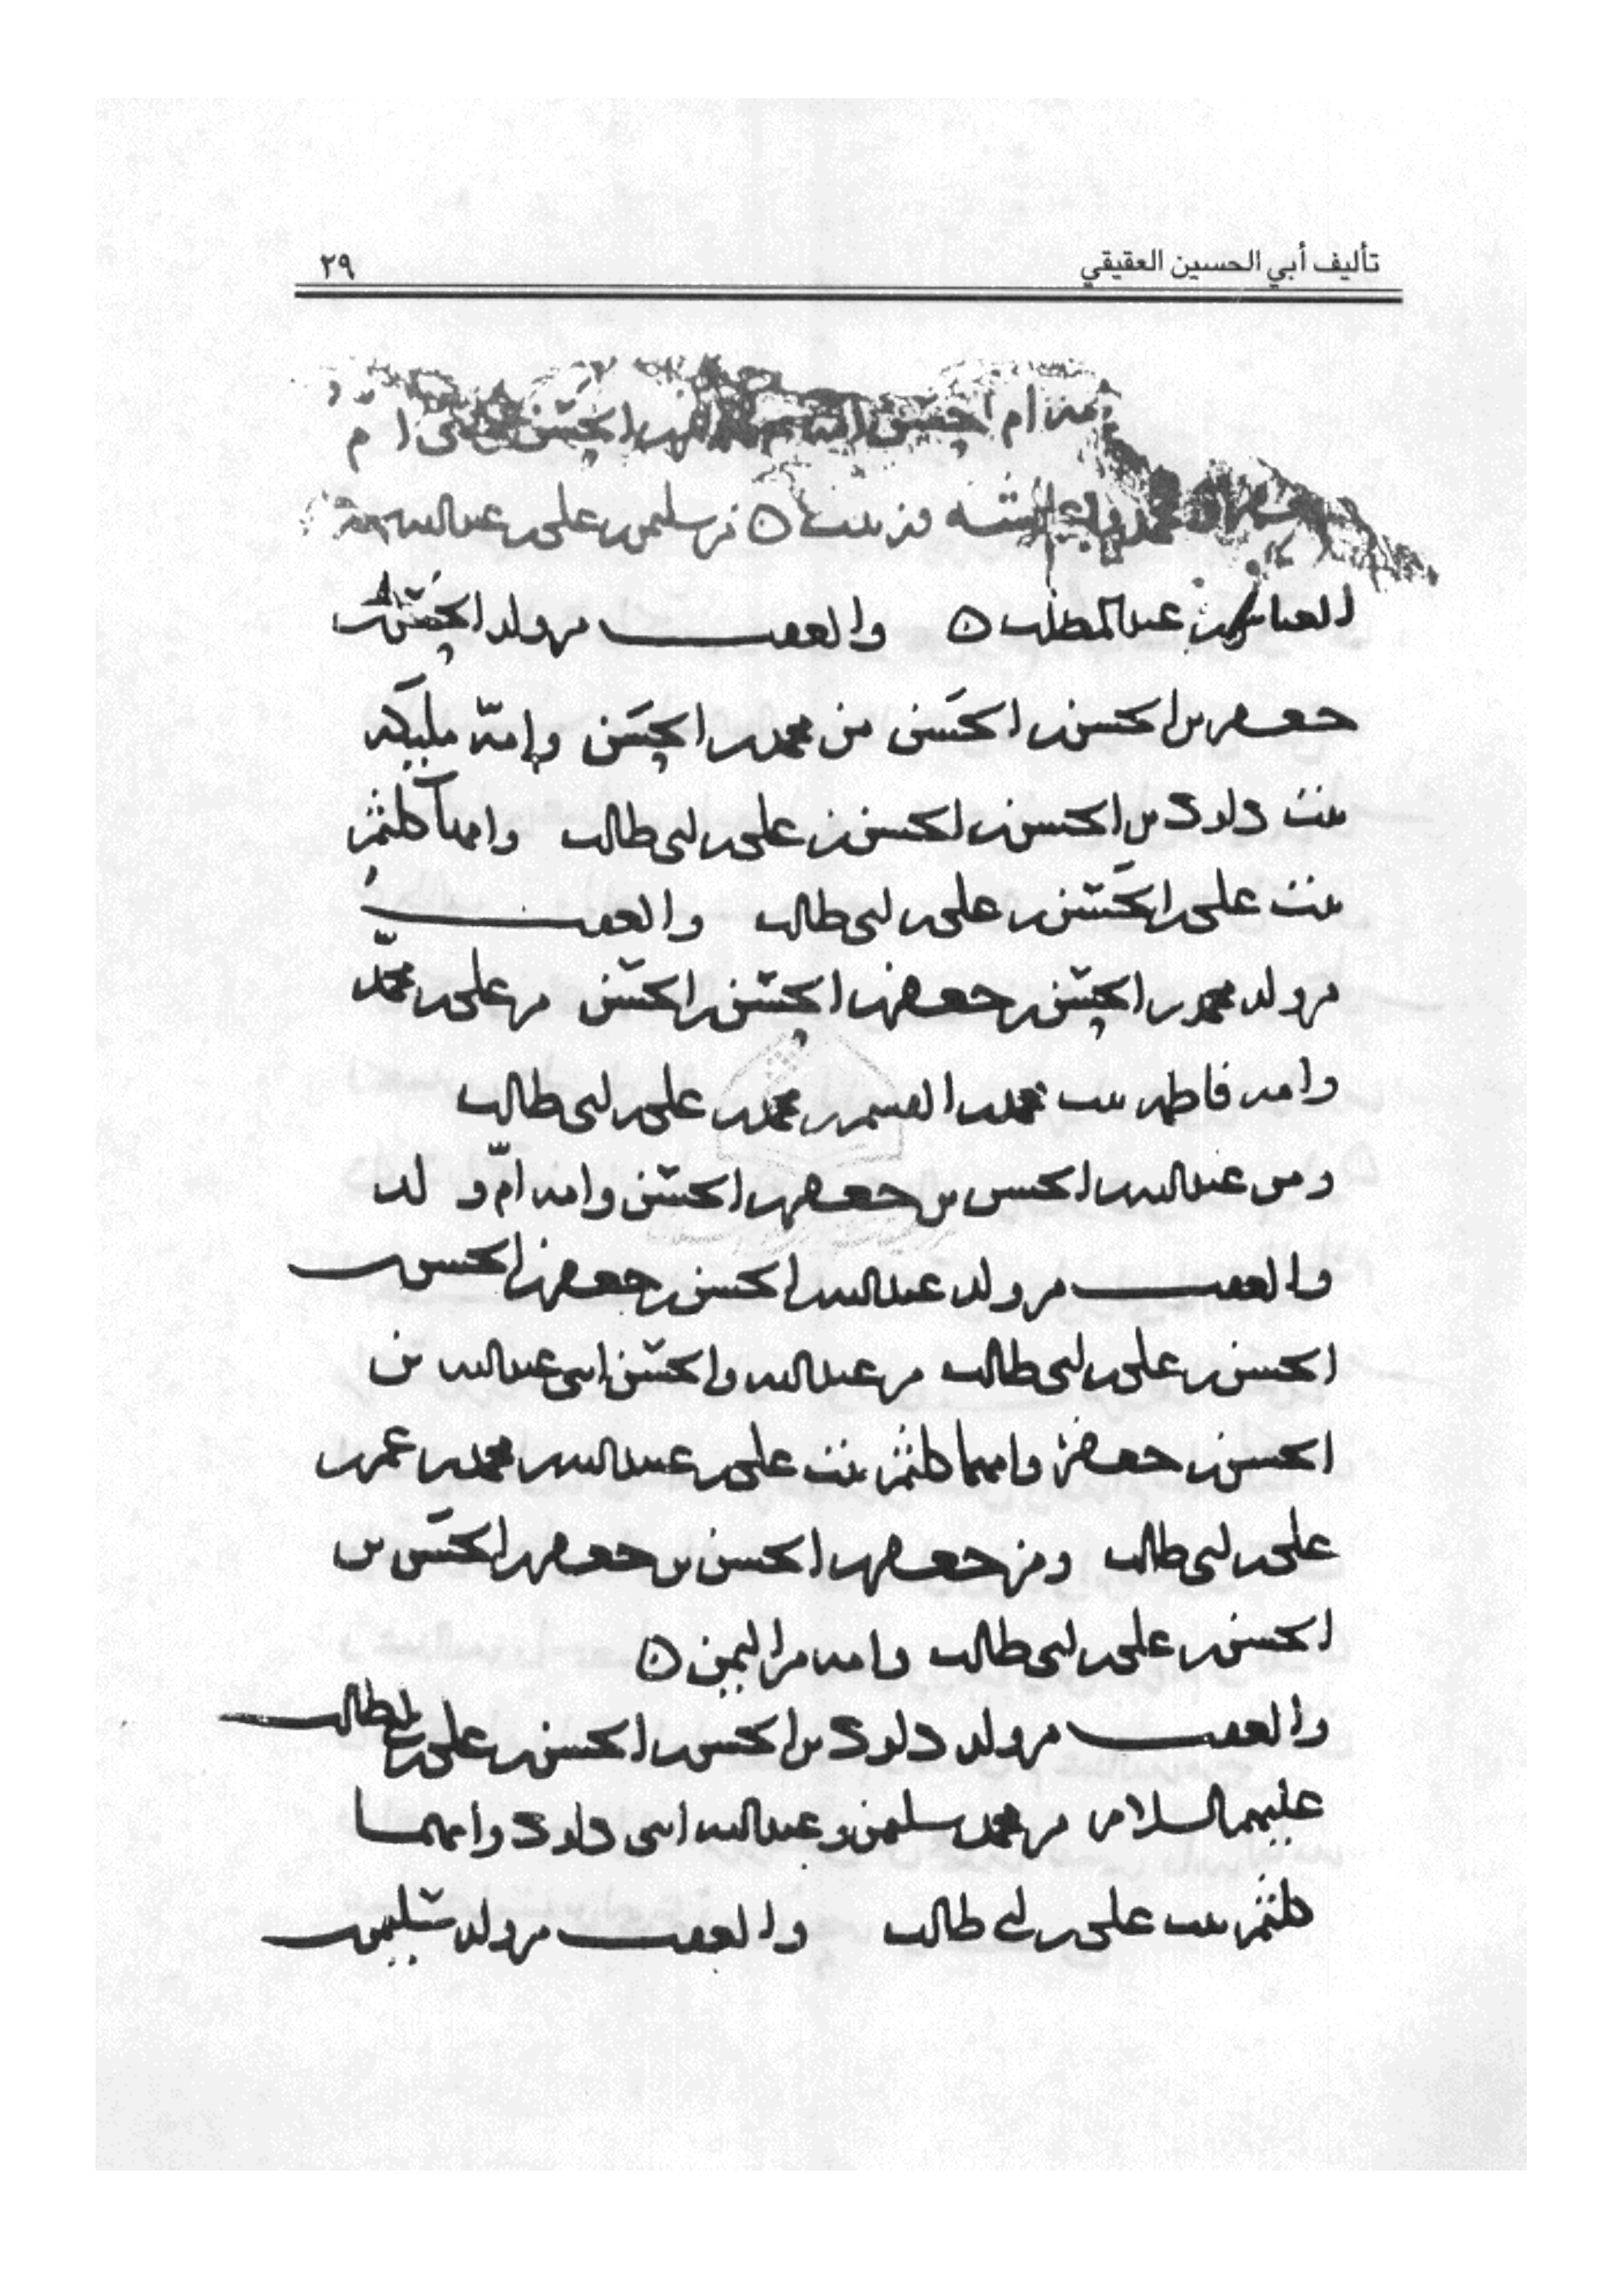 تأليف أبي الحسين العقيقي
٢٩
ام
بن سليمن بن علي بن عبدالله بن
العباس بن عبدالمطلب ه والعقب من ولد الحسن بن
جعفر بن الحسن بن الحسن من محمد بن الحسن وامه مليكه
بنت داود بن الحسن بن الحسن بن علي بن ابي طالب وامها كلثم
بنت علي بن الحسين بن علي بن ابي طالب والعقب
من ولد محمد بن الحسن بن جعفر بن الحسن بن الحسن من علي بن محمد
وامه فاطمه بنت محمد بن القسم بن محمد بن علي بن ابي طالب
ومن عبدالله بن الحسن بن جعفر بن الحسن وامه ام ولد
والعقب من ولد عبدالله بن الحسن بن جعفر بن الحسن بن
الحسن بن علي بن ابي طالب من عبدالله والحسن ابني عبدالله بن
الحسن بن جعفر وامهما كلثم بنت علي بن عبيدالله بن محمد بن عمر بن
علي بن ابي طالب ومن جعفر بن الحسن بن جعفر بن الحسن بن
الحسن بن علي بن ابي طالب وامه من اليمن ه
والعقب من ولد داود بن الحسن بن الحسن بن علي بن ابي طالب
عليهم السلام من سليمن وعبدالله ابني داود وامهما
كلثم بنت علي بن ابي طالب والعقب من ولد سليمن